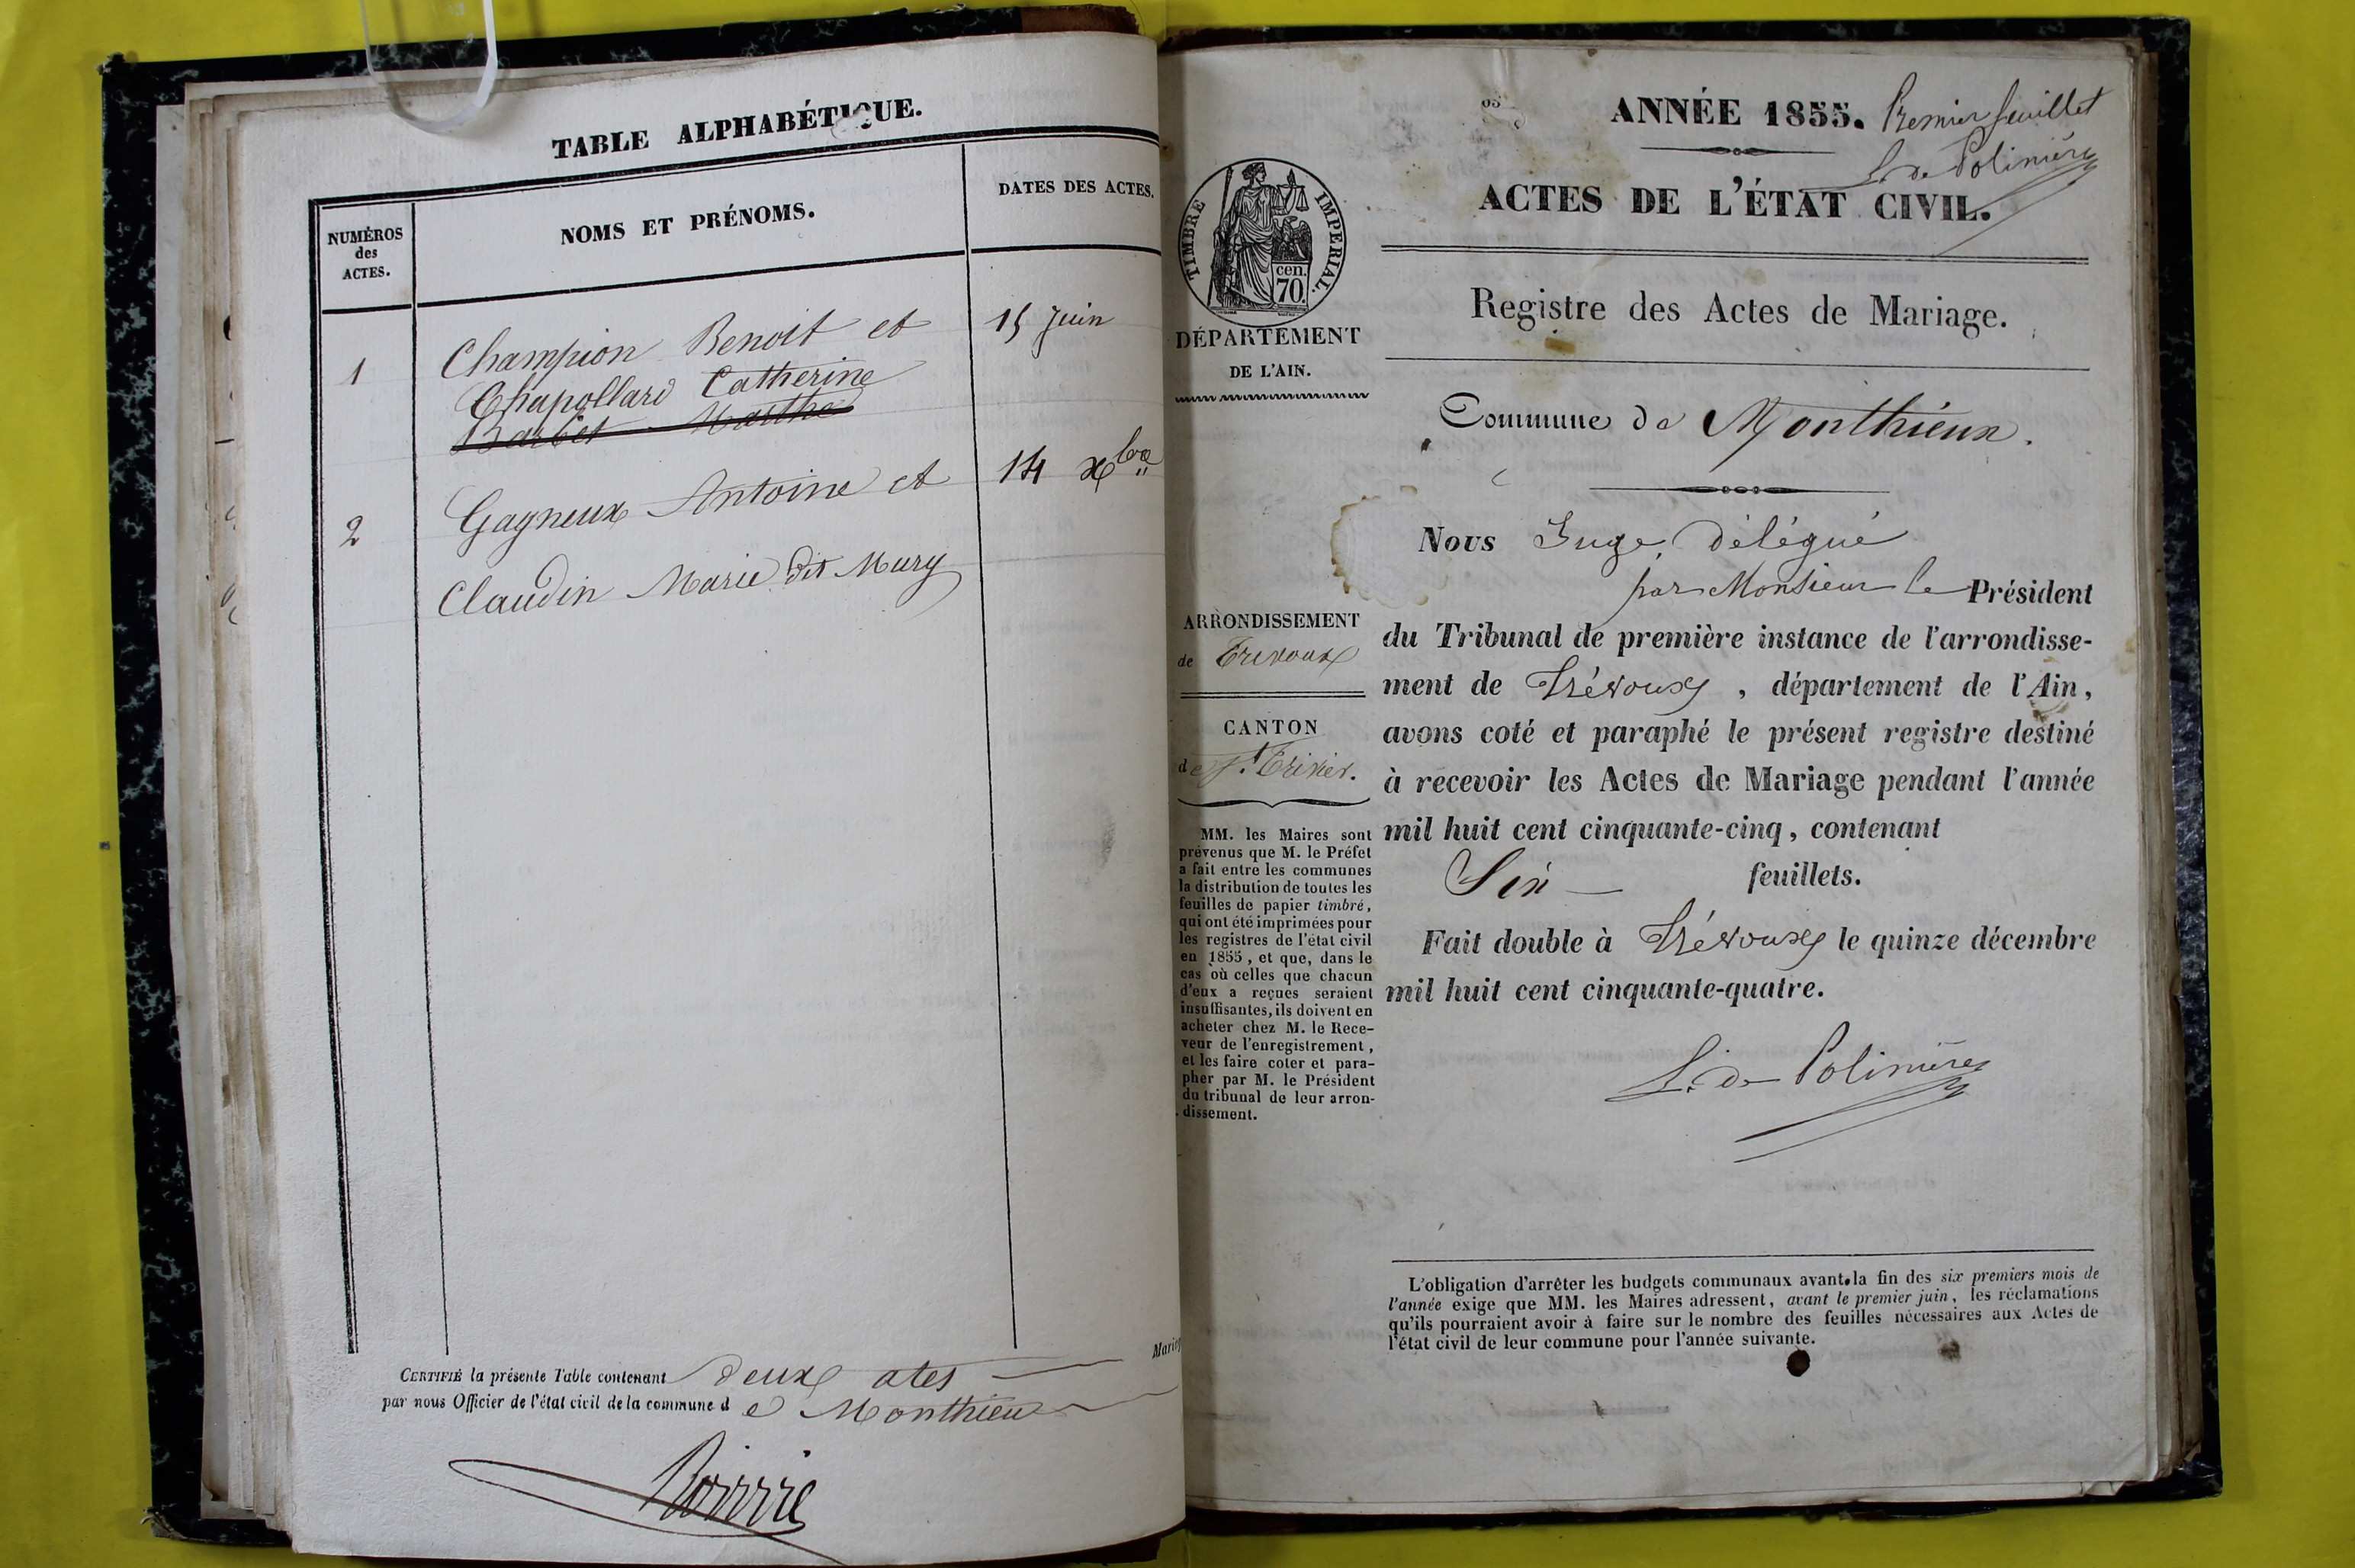 TABLE ALPHABÉTIQUE.
NUMÉROS
des
ACTES.
NOMS ET PRÉNOMS.
DATES DES ACTES.
1
Champion Benoit et
15 Juin
Chapollard Catherine
Barbet Marthe
2
Gagneux Antoine et
14 xbre
Claudin Marie dit Mury
Mariag
CERTIFIÉ la présente Table contenant deux ates
par nous Officier de l'état civil de la commune d e Monthieux
ANNÉE 1855. Premier feuillet
L. de Polinière
ACTES DE L'ÉTAT CIVIL.
TIMBRE IMPERIAL.
cen.
70.
DÉPARTEMENT
DE L'AIN.
Registre des Actes de Mariage.
Commune de Monthieux.
Nous Juge délégué
par Monsieur le Président
du Tribunal de première instance de l'arrondisse-
ment de Trévoux, département de l'Ain,
avons coté et paraphé le présent registre destiné
à recevoir les Actes de Mariage pendant l'année
mil huit cent cinquante-cinq, contenant
Six feuillets.
Fait double à Trévoux le quinze décembre
mil huit cent cinquante-quatre.
L. de Polinière
ARRONDISSEMENT
de Trevoux
CANTON
de St. Trivier.
MM. les Maires sont
prévenus que M. le Préfet
a fait entre les communes
la distribution de toutes les
feuilles de papier timbré,
qui ont été imprimées pour
les registres de l'état civil
en 1855, et que, dans le
cas où celles que chacun
d'eux a reçues seraient
insuffisantes, ils doivent en
acheter chez M. le Rece-
veur de l'enregistrement,
et les faire coter et para-
pher par M. le Président
du tribunal de leur arron-
dissement.
L'obligation d'arrêter les budgets communaux avant la fin des six premiers mois de
l'année exige que MM. les Maires adressent, avant le premier juin, les réclamations
qu'ils pourraient avoir à faire sur le nombre des feuilles nécessaires aux Actes de
l'état civil de leur commune pour l'année suivante.